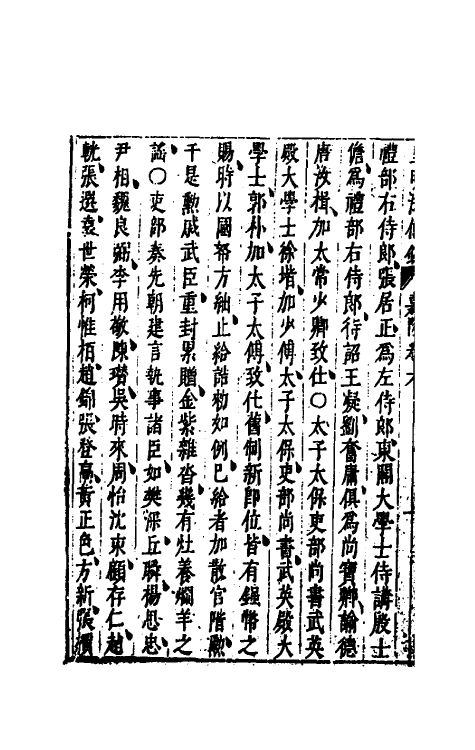 禮部右侍郎張居正為左侍郎東閣大學士侍講殷士
儋為禮部右侍郎待詔王凝劉奮庸俱為尚寶卿諭德
唐汝楫加太常少卿致仕○太子太保吏部尚書武英
殿大學士徐堦加少傅太子太保吏部尚書武英殿大
學士郭朴加太子太傅致仕舊制新即位皆有鏹幣之
賜時以國帑方紬止給誥勑如例已給者加散官階勲
于是勲戚武臣重封累贈金紫雜沓幾有灶養爛羊之
謡○吏部奏先朝建言執事諸臣如樊深丘橓楊思忠
尹相魏良弼李用敬陳瓚吳時來周怡沈束顧存仁趙
䡄張選袁世榮柯惟栢趙錦張登高黄正色方新張檟